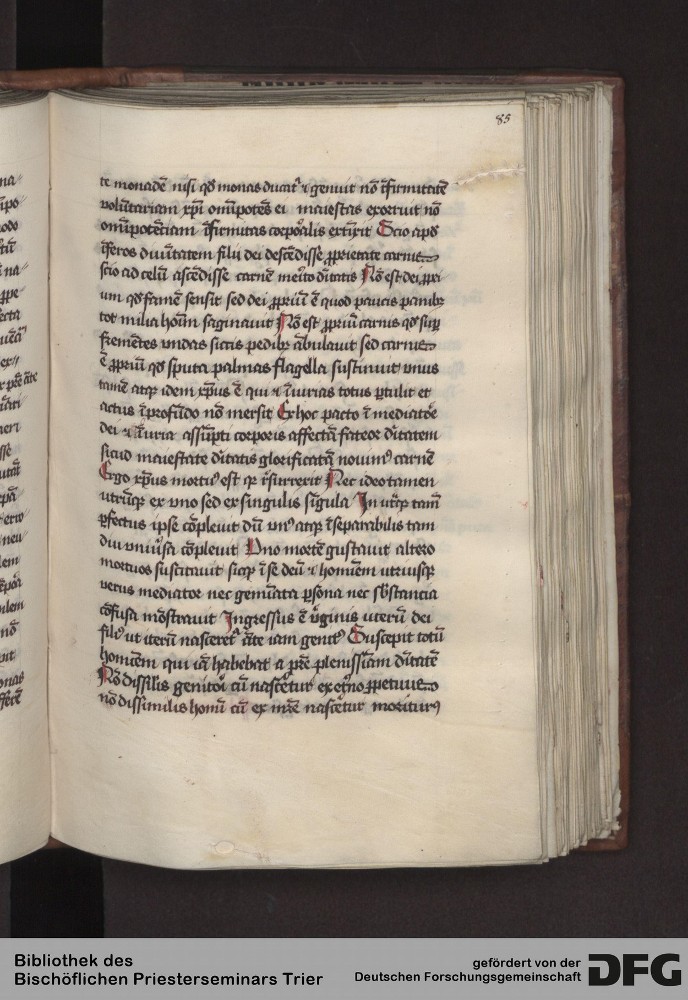 85
te monadē nisi qđ monas ducat᷑ ⁊ genuit nō īfirmitatē
volūtariam xp̄i omīpotēs ei maiestas exornuit nō
omīpotēciam īfirmitas corporalis extīxit Scio apđ
īferos diuītatem filii dei descēdisse ꝓprietate carnis
scio ad celū ascēdisse carnē merito dītatis Nō est dei ꝓpri
um qđ famē sensit sed dei ꝓpriū ē quod paucis panibꝫ
tot milia hoīm saginauit Nō est ꝓpriū carnis qđ suꝑ
fremētes vndas siccis pedibꝫ ābulauit sed carnis
ē ꝓpriū qđ sputa palmas flagella sustinuit vnus
tamē atqꝫ idem xp̄us ē qui ⁊ īiurias totus ꝑtulit et
actus ī profūdo nō mersit Ex hoc pacto ī mediatōre
dei ⁊ īiuria assūpti corporis affectā fateor dītatem
sicud maiestate dītatis glorificatā nouimꝰ carnē
Ergo xp̄us mortuꝰ est qꝫ ⁊ surrexit Nec ideo tamen
utrūqꝫ ex vno sed ex singulis sīgula In utqꝫ tam̄
ꝑfectus ipse cōpleuit dū vnꝰ atqꝫ īseparabilis tam
diu vniūsa cōpleuit Vno mortē gustauit altero
mortuos suscitauit sicqꝫ ī se deū ⁊ hominem vtriusqꝫ
verus mediator nec gemīata ꝑsona nec sbstancia
cōfusa mōstrauit Ingressus ē v̄ginis uterū dei
filiꝰ ut iterū nasceret᷑ āte iam genitꝰ Suscepit totū
homīem qui iā habebat a p̄re plenissīam dītatē
Nō dissilis genitori cū nascēetur ex et̄no ꝑpetuus
nō dissimilis homī cū ex mr̄e nascetur moriturꝰ
Bibliothek des
Bischöflichen Priesterseminars Trier
gefördert von der
Deutschen Forschungsgemeinschaft
DFG